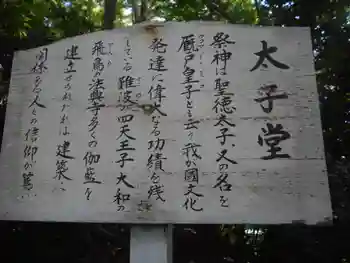 太子堂
祭神は聖徳太子又の名を
厩戸皇子と云う我が國文化
発達に偉大なる功績を残
している難波の四天王子大和の
飛鳥の法興寺多くの伽藍を
建立されたれば建築に
関係ある人々の信仰が篤い